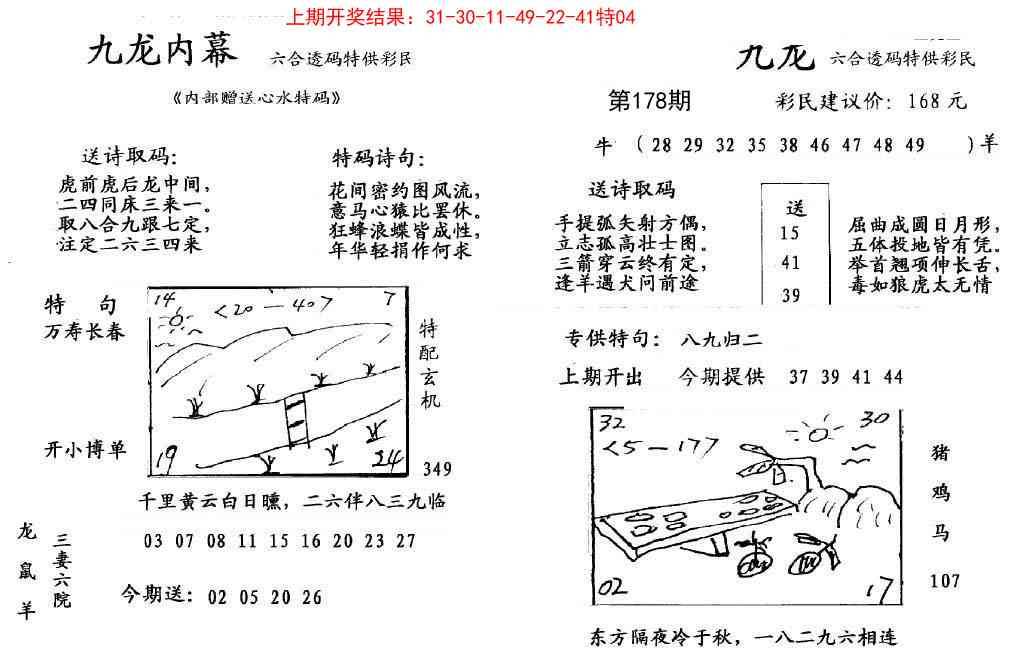 上期开奖结果：31-30-11-49-22-41特04
九龙内幕 六合透码特供彩民
《内部赠送心水特码》
送诗取码：
虎前虎后龙中间，
二四同床三来一。
取八合九跟七定，
注定二六三四来
特码诗句：
花间密约图风流，
意马心猿比罢休。
狂蜂浪蝶皆成性，
年华轻捐作何求
特 句
万寿长春
开小博单
14 7
<20—40>
19 24
特配玄机
349
千里黄云白日曛，二六伴八三九临
龙鼠羊
三妻六院
03 07 08 11 15 16 20 23 27
今期送：02 05 20 26
九龙 六合透码特供彩民
第178期 彩民建议价：168元
牛（28 29 32 35 38 46 47 48 49 ）羊
送诗取码
手提弧矢射方偶，
立志孤高壮士图。
三箭穿云终有定，
逢羊遇犬问前途
送
15
41
39
屈曲成圆日月形，
五体投地皆有凭。
举首翘项伸长舌，
毒如狼虎太无情
专供特句：八九归二
上期开出 今期提供 37 39 41 44
32 30
<5—17>
02 17
猪
鸡
马
107
东方隔夜冷于秋，一八二九六相连